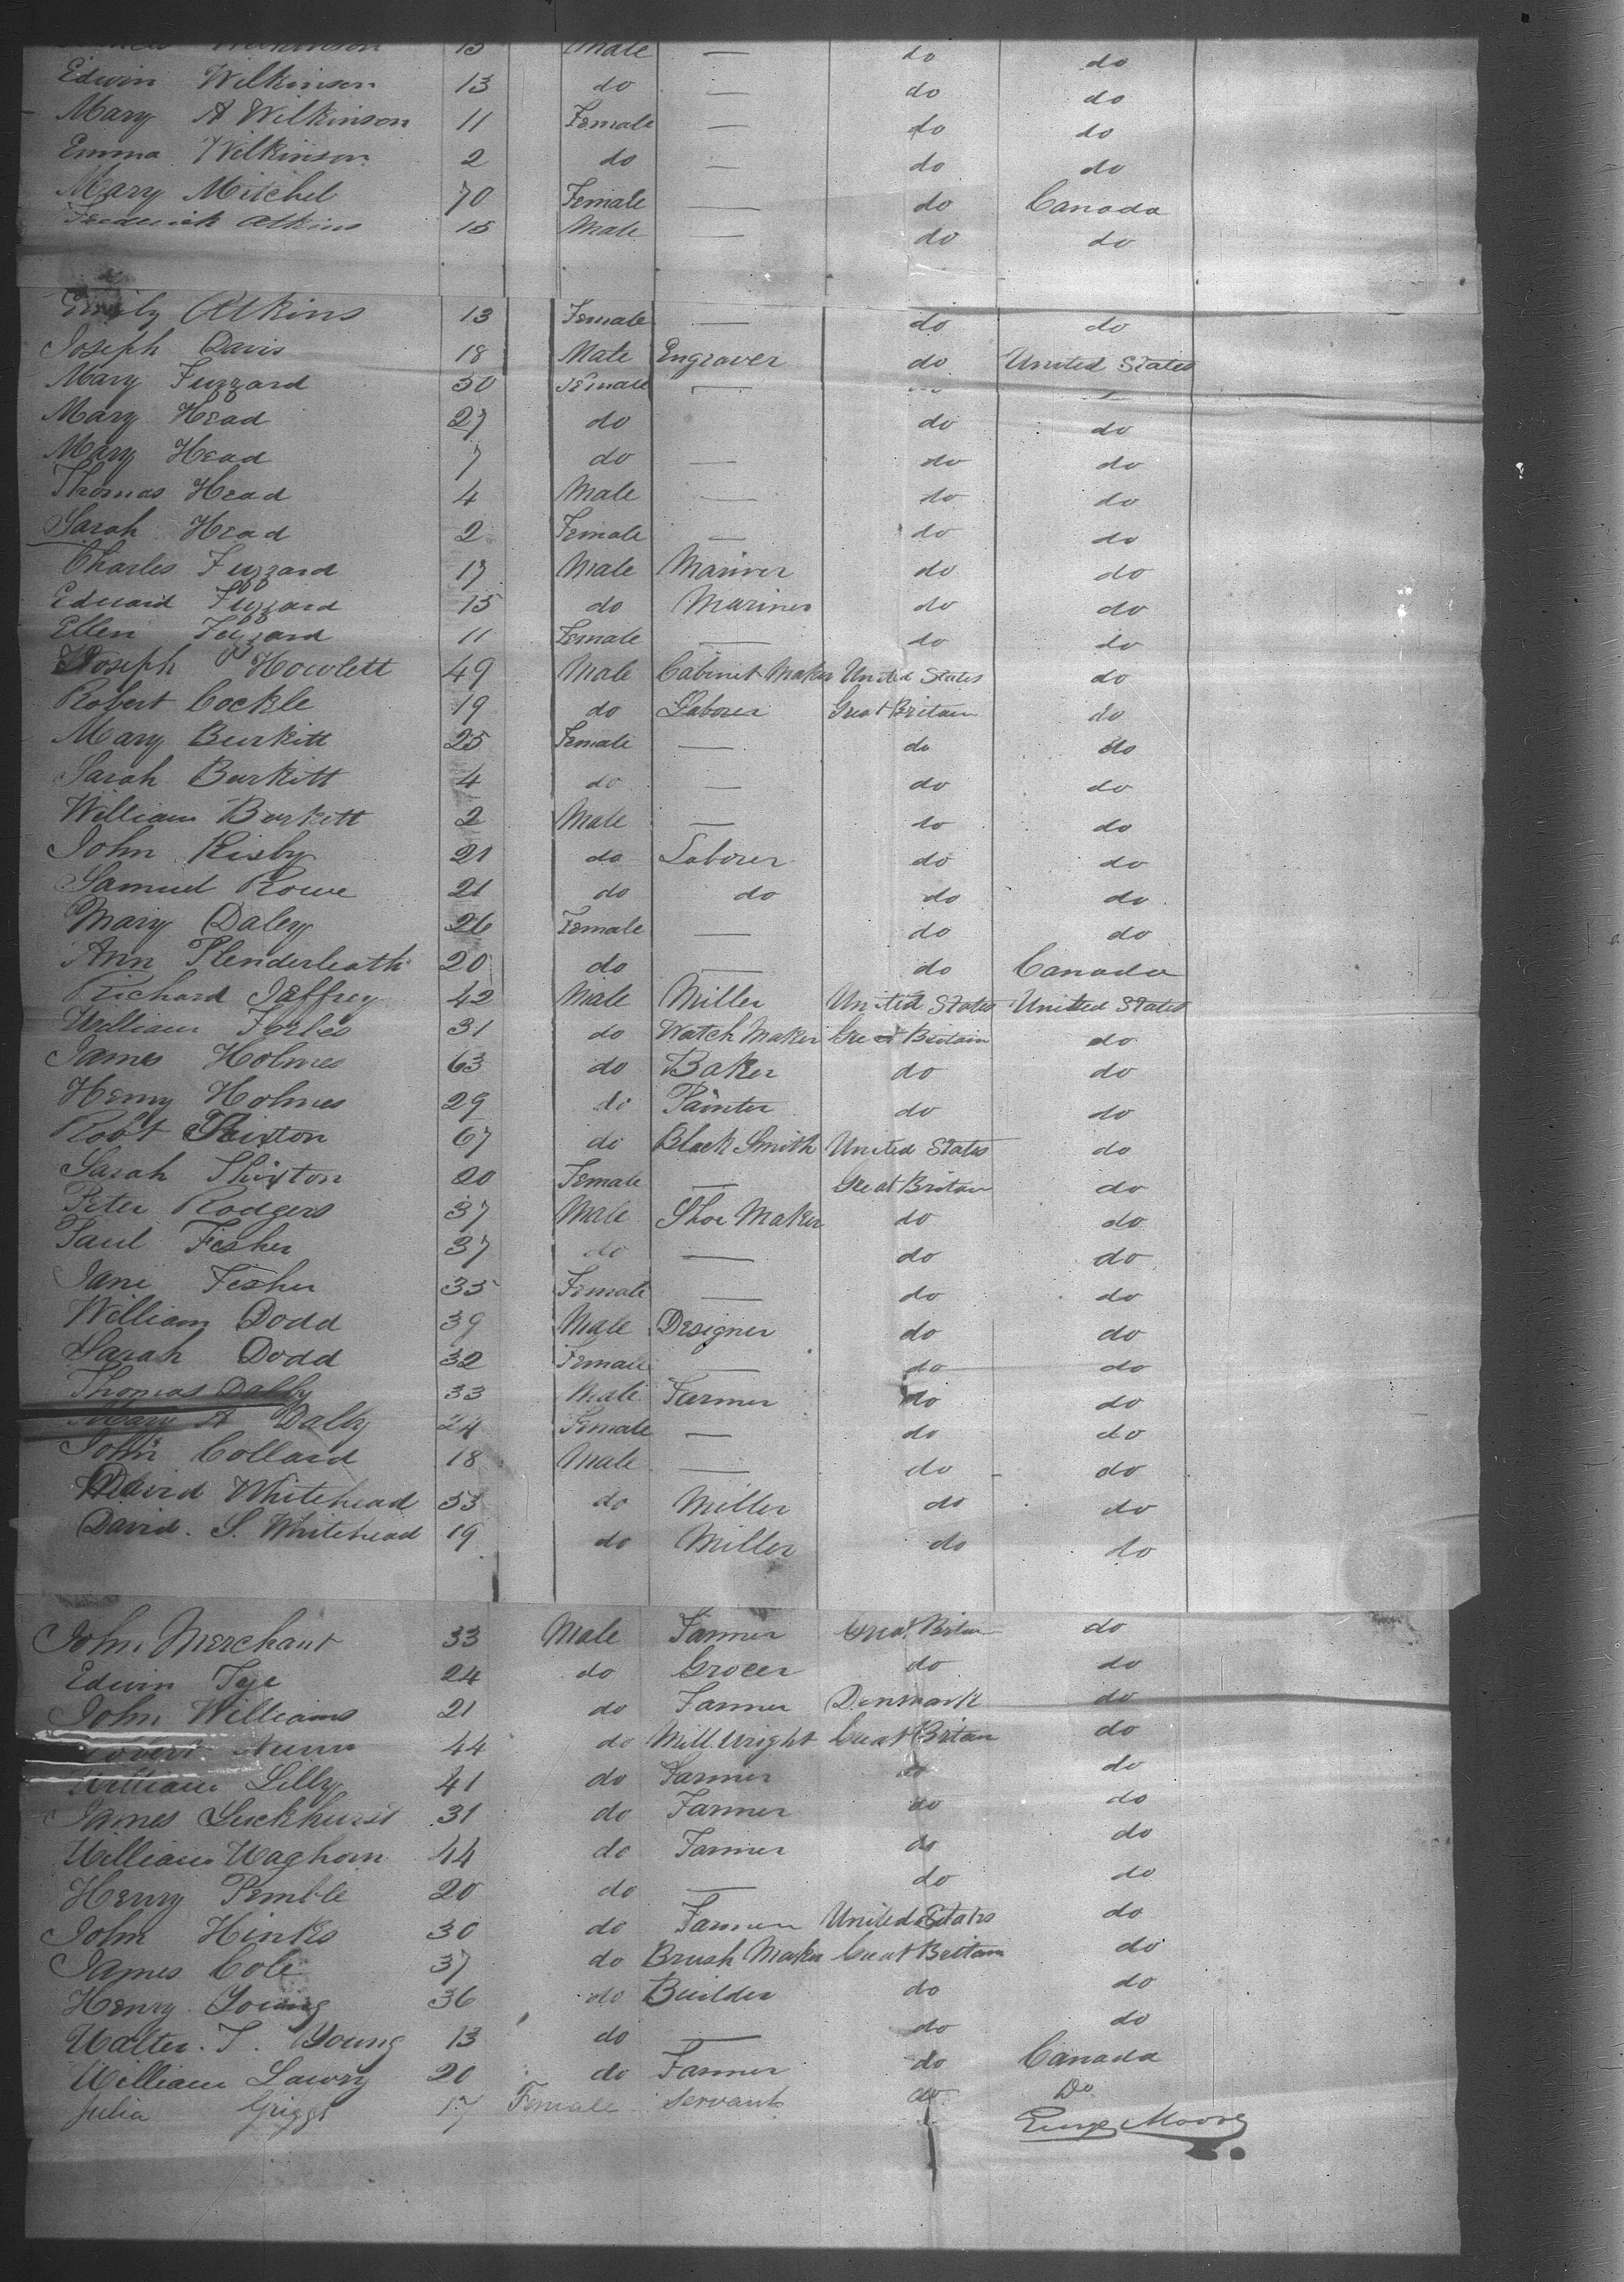 Wilkinson 15 Male — do do
Edwin Wilkinson 13 do — do do
Mary A Wilkinson 11 Female — do do
Emma Wilkinson 2 do — do do
Mary Mitchel 70 Female — do Canada
Frederick Atkins 15 Male — do do
Emily Atkins 13 Female — do do
Joseph Davis 18 Male Engraver do United States
Mary Fuzzard 50 Female —
Mary Head 27 do do do
Mary Head 7 do — do do
Thomas Head 4 Male — do do
Sarah Head 2 Female — do do
Charles Fuzzard 17 Male Mariner do do
Edward Fuzzard 15 do Mariner do do
Ellen Fuzzard 11 Female — do do
Joseph Howlett 49 Male Cabinet Maker United States do
Robert Cockle 19 do Laborer Great Britain do
Mary Burkitt 25 Female — do do
Sarah Burkitt 4 do — do do
William Burkitt 2 Male — do do
John Risby 21 do Laborer do do
Samuel Rowe 21 do do do do
Mary Daley 26 Female — do do
Ann Plenderleath 20 do — do Canada
Richard Jeffrey 42 Male Miller United States United States
William 31 do Watch Maker Great Britain do
James Holmes 63 do Baker do do
Henry Holmes 29 do Painter do do
Robt 67 do Black Smith United States do
Sarah 20 Female — Great Britain do
Peter Rodgers 37 Male Shoe Maker do do
Paul Fisher 37 do — do do
Jane Fisher 35 Female — do do
William Dodd 39 Male Designer do do
Sarah Dodd 32 Female — do do
Thomas Dalby 33 Male Farmer do do
Mary A Dalby 24 Female — do do
John Collard 18 Male — do do
David Whitehead 53 do Miller do do
David. S. Whitehead 19 do Miller do do
John Merchant 33 Male Farmer Great Britain do
Edwin Tye 24 do Grocer do do
John Williams 21 do Farmer Denmark do
Robert Nunn 44 do Mill Wright Great Britain do
William Lilly 41 do Farmer do do
James Luckhurst 31 do Farmer do do
William Waghorn 44 do Farmer do do
Henry Pemble 20 do — do do
John Hinks 30 do Farmer United States do
James Cole 37 do Brush Maker Great Britain do
Henry Young 36 do Builder do do
Walter. T. Young 13 do — do do
William Lawry 20 do Farmer do Canada
Julia Griggs 17 Female Servant do Do
Moore